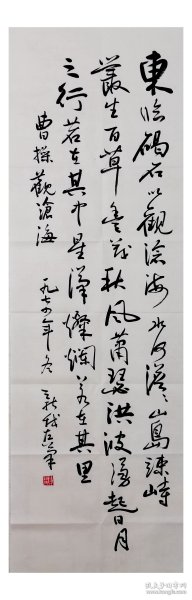 東臨碣石以觀滄海水何澹々山島竦峙
叢生百草豐茂秋风蕭瑟洪波湧起日月
之行若在其中星漢燦爛若在其里
曹操觀滄海 一九七六年冬